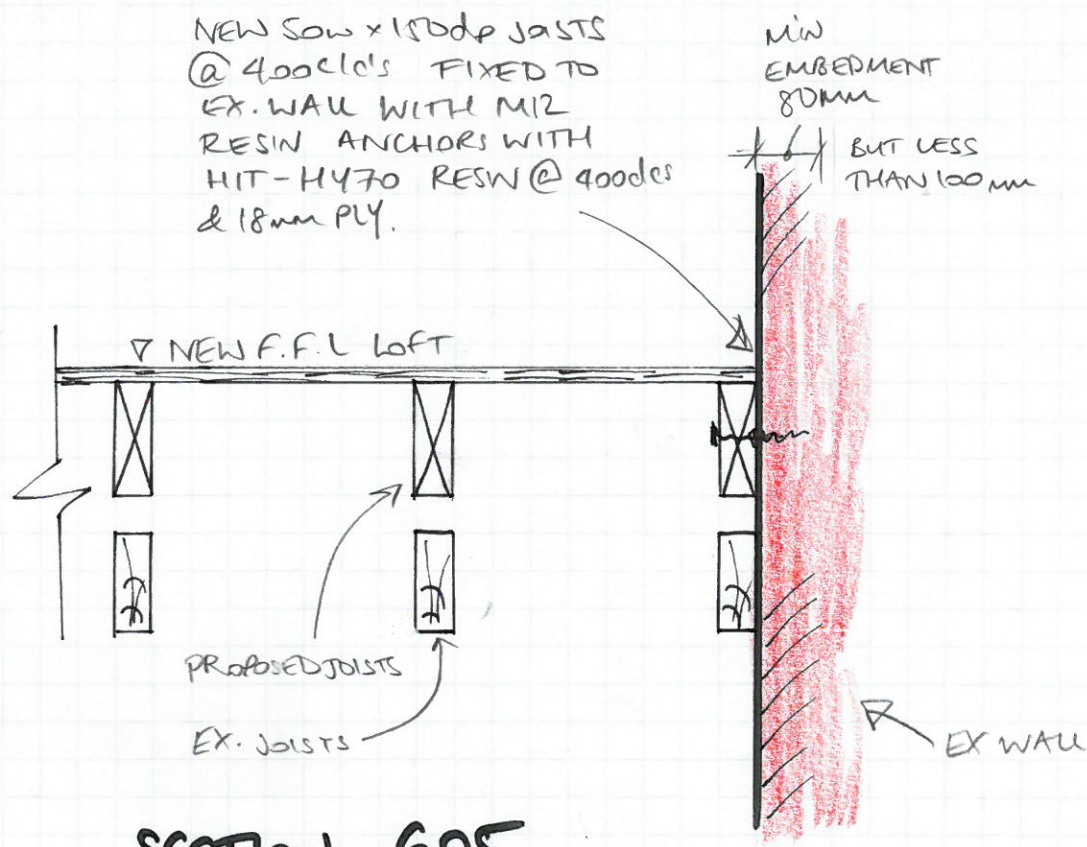 NEW 50w x 150dp JOISTS
@ 400c/c's FIXED TO
EX. WALL WITH M12
RESIN ANCHORS WITH
HIT-HY70 RESIN @ 400c/cs
& 18mm PLY.
MIN
EMBEDMENT
80MM
BUT LESS
THAN 100mm
NEW F.F.L LOFT
PROPOSED JOISTS
EX. JOISTS
EX WALL
SECTION G05